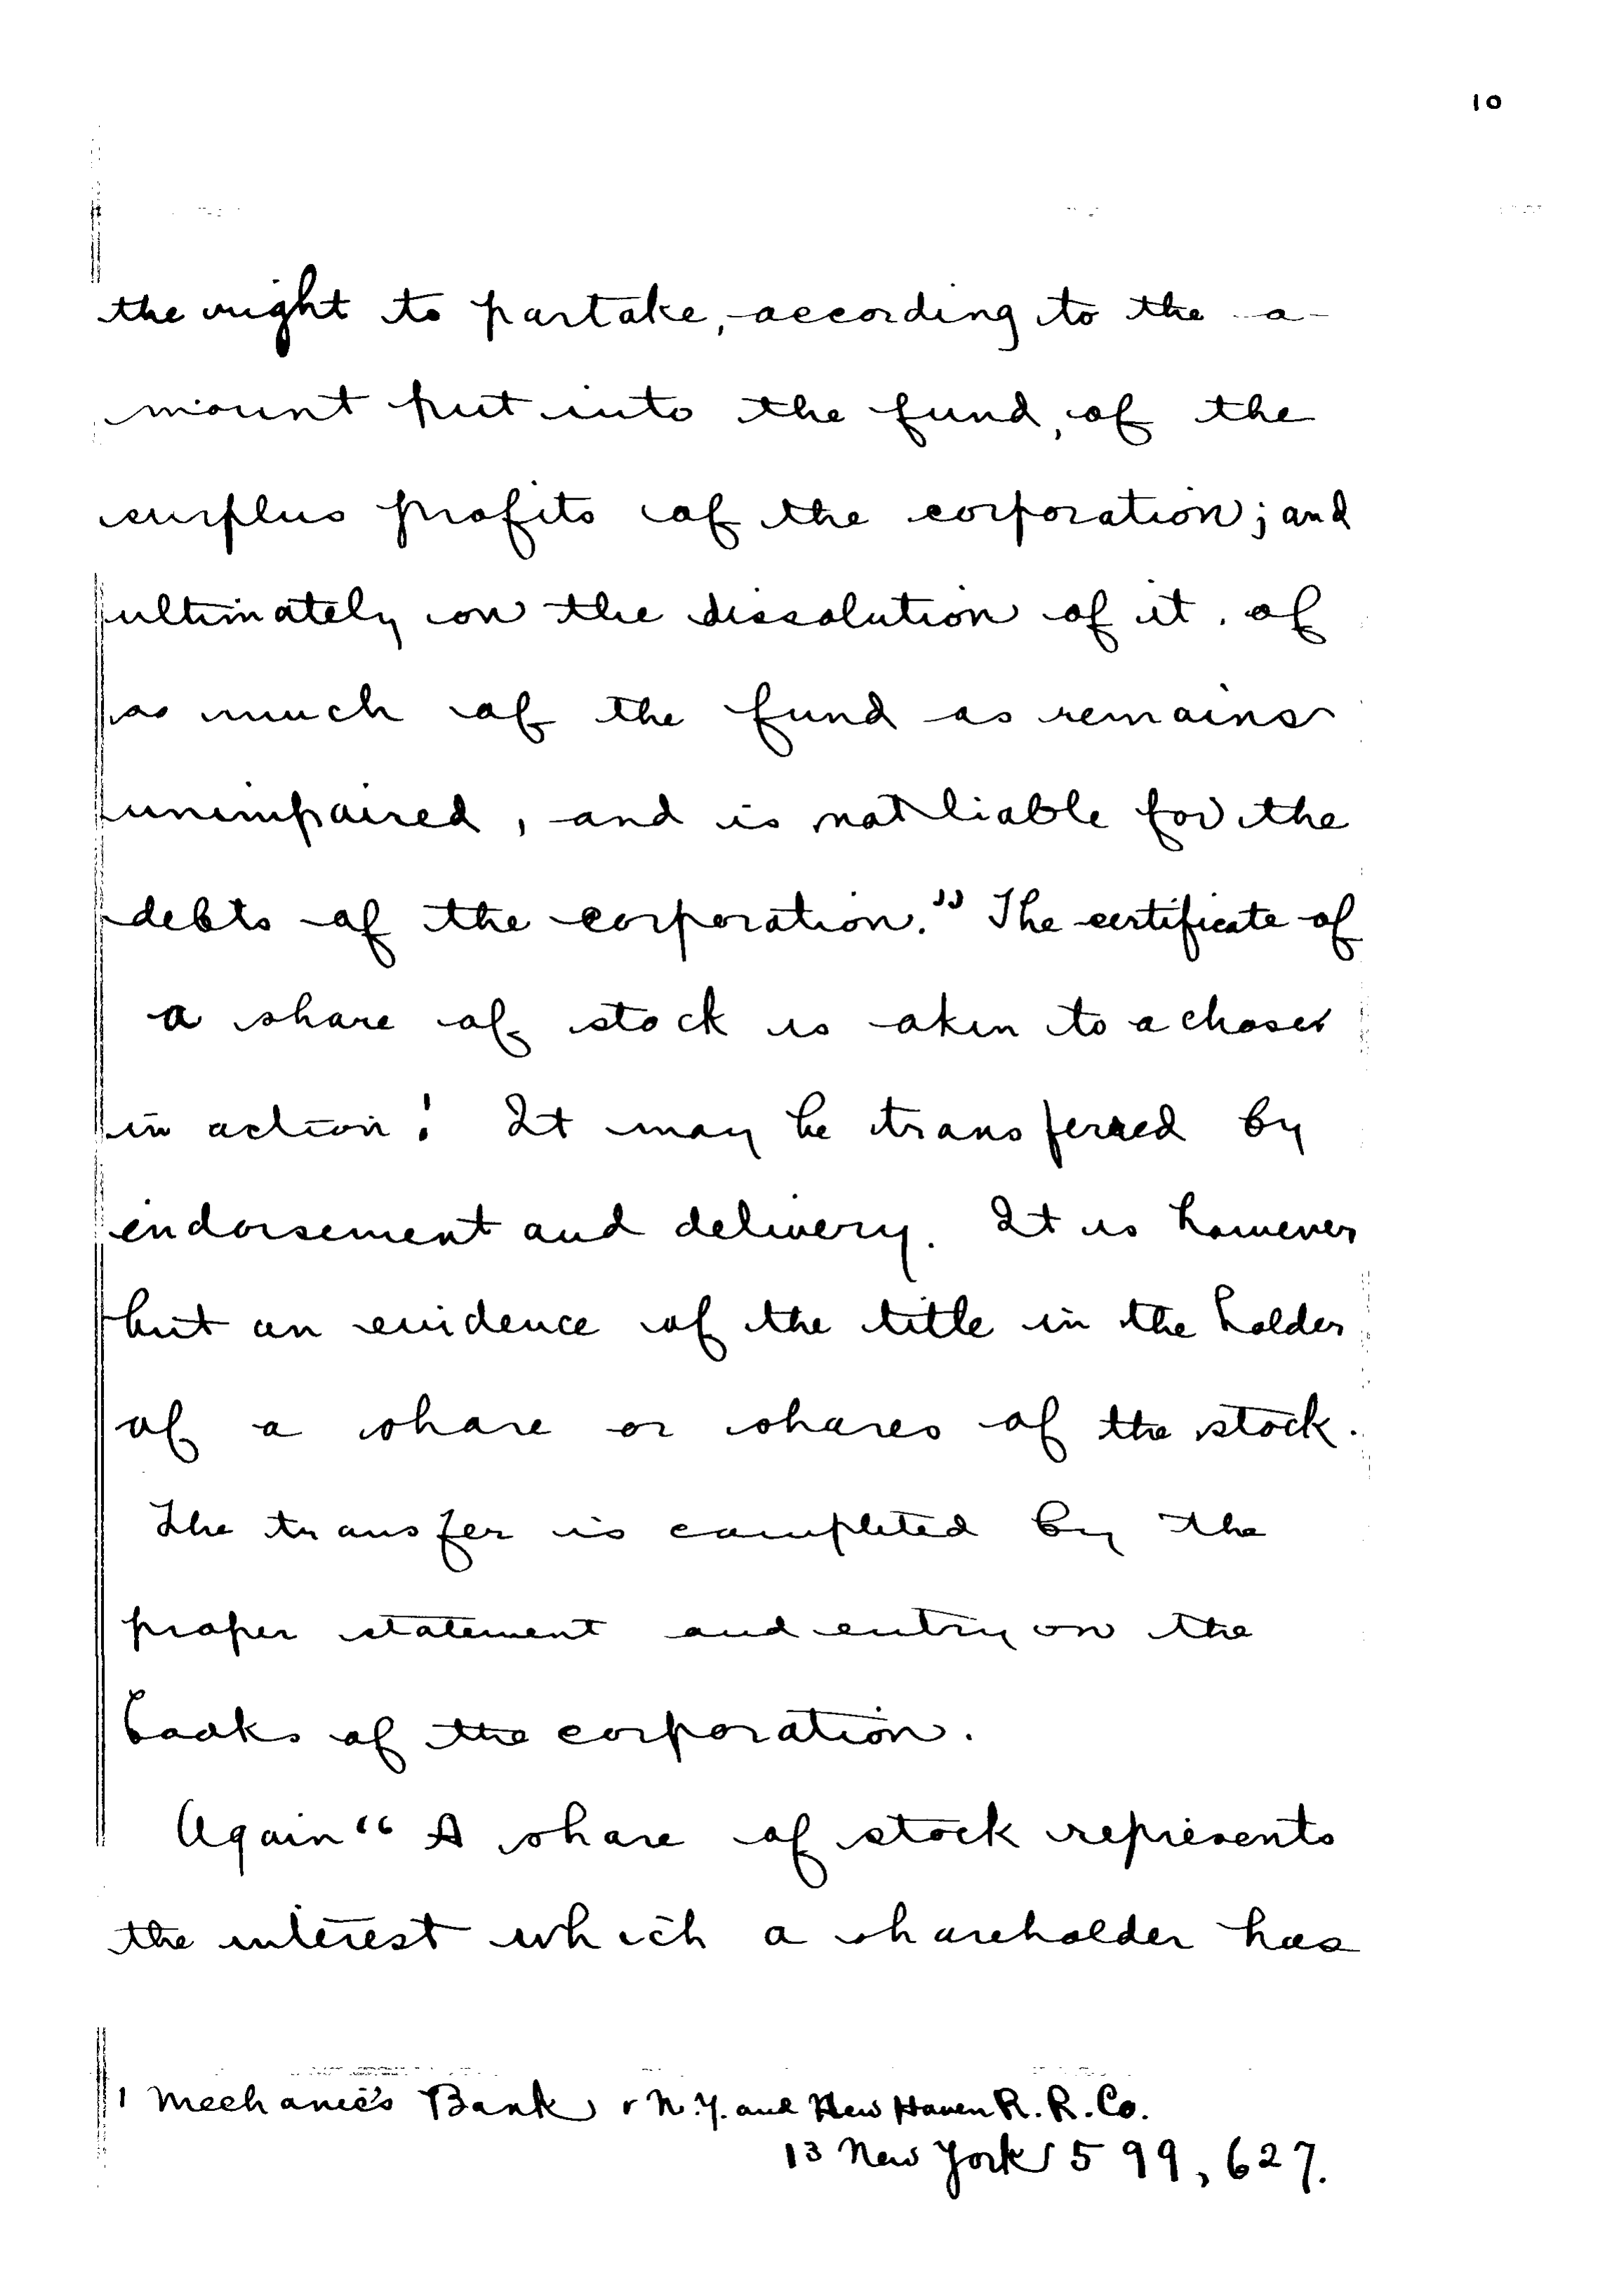 10
the right to partake, according to the a-
mount put into the fund, of the
surplus profits of the corporation; and
ultimately on the dissolution of it, of
as much of the fund as remains
unimpaired, and is not liable for the
debts of the corporation." The certificate of
a share of stock is akin to a chose
in action.¹ It may be transferred by
endorsement and delivery. It is however
but an evidence of the title in the holder
of a share or shares of the stock.
The transfer is completed by the
proper statement and entry on the
books of the corporation.
Again "A share of stock represents
the interest which a shareholder has
1 Mechanic's Bank v N.Y. and New Haven R. R. Co.
13 New York 599, 627.